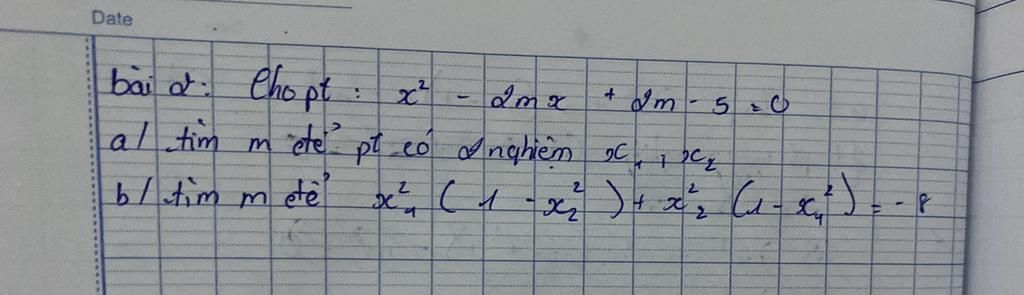 Date
bài 2: Cho pt: x² - 2mx + 2m - 5 = 0
a/ tìm m để pt có 2 nghiệm x₁, x₂
b/ tìm m để x₁² (1 - x₂²) + x₂² (1 - x₁²) = -8